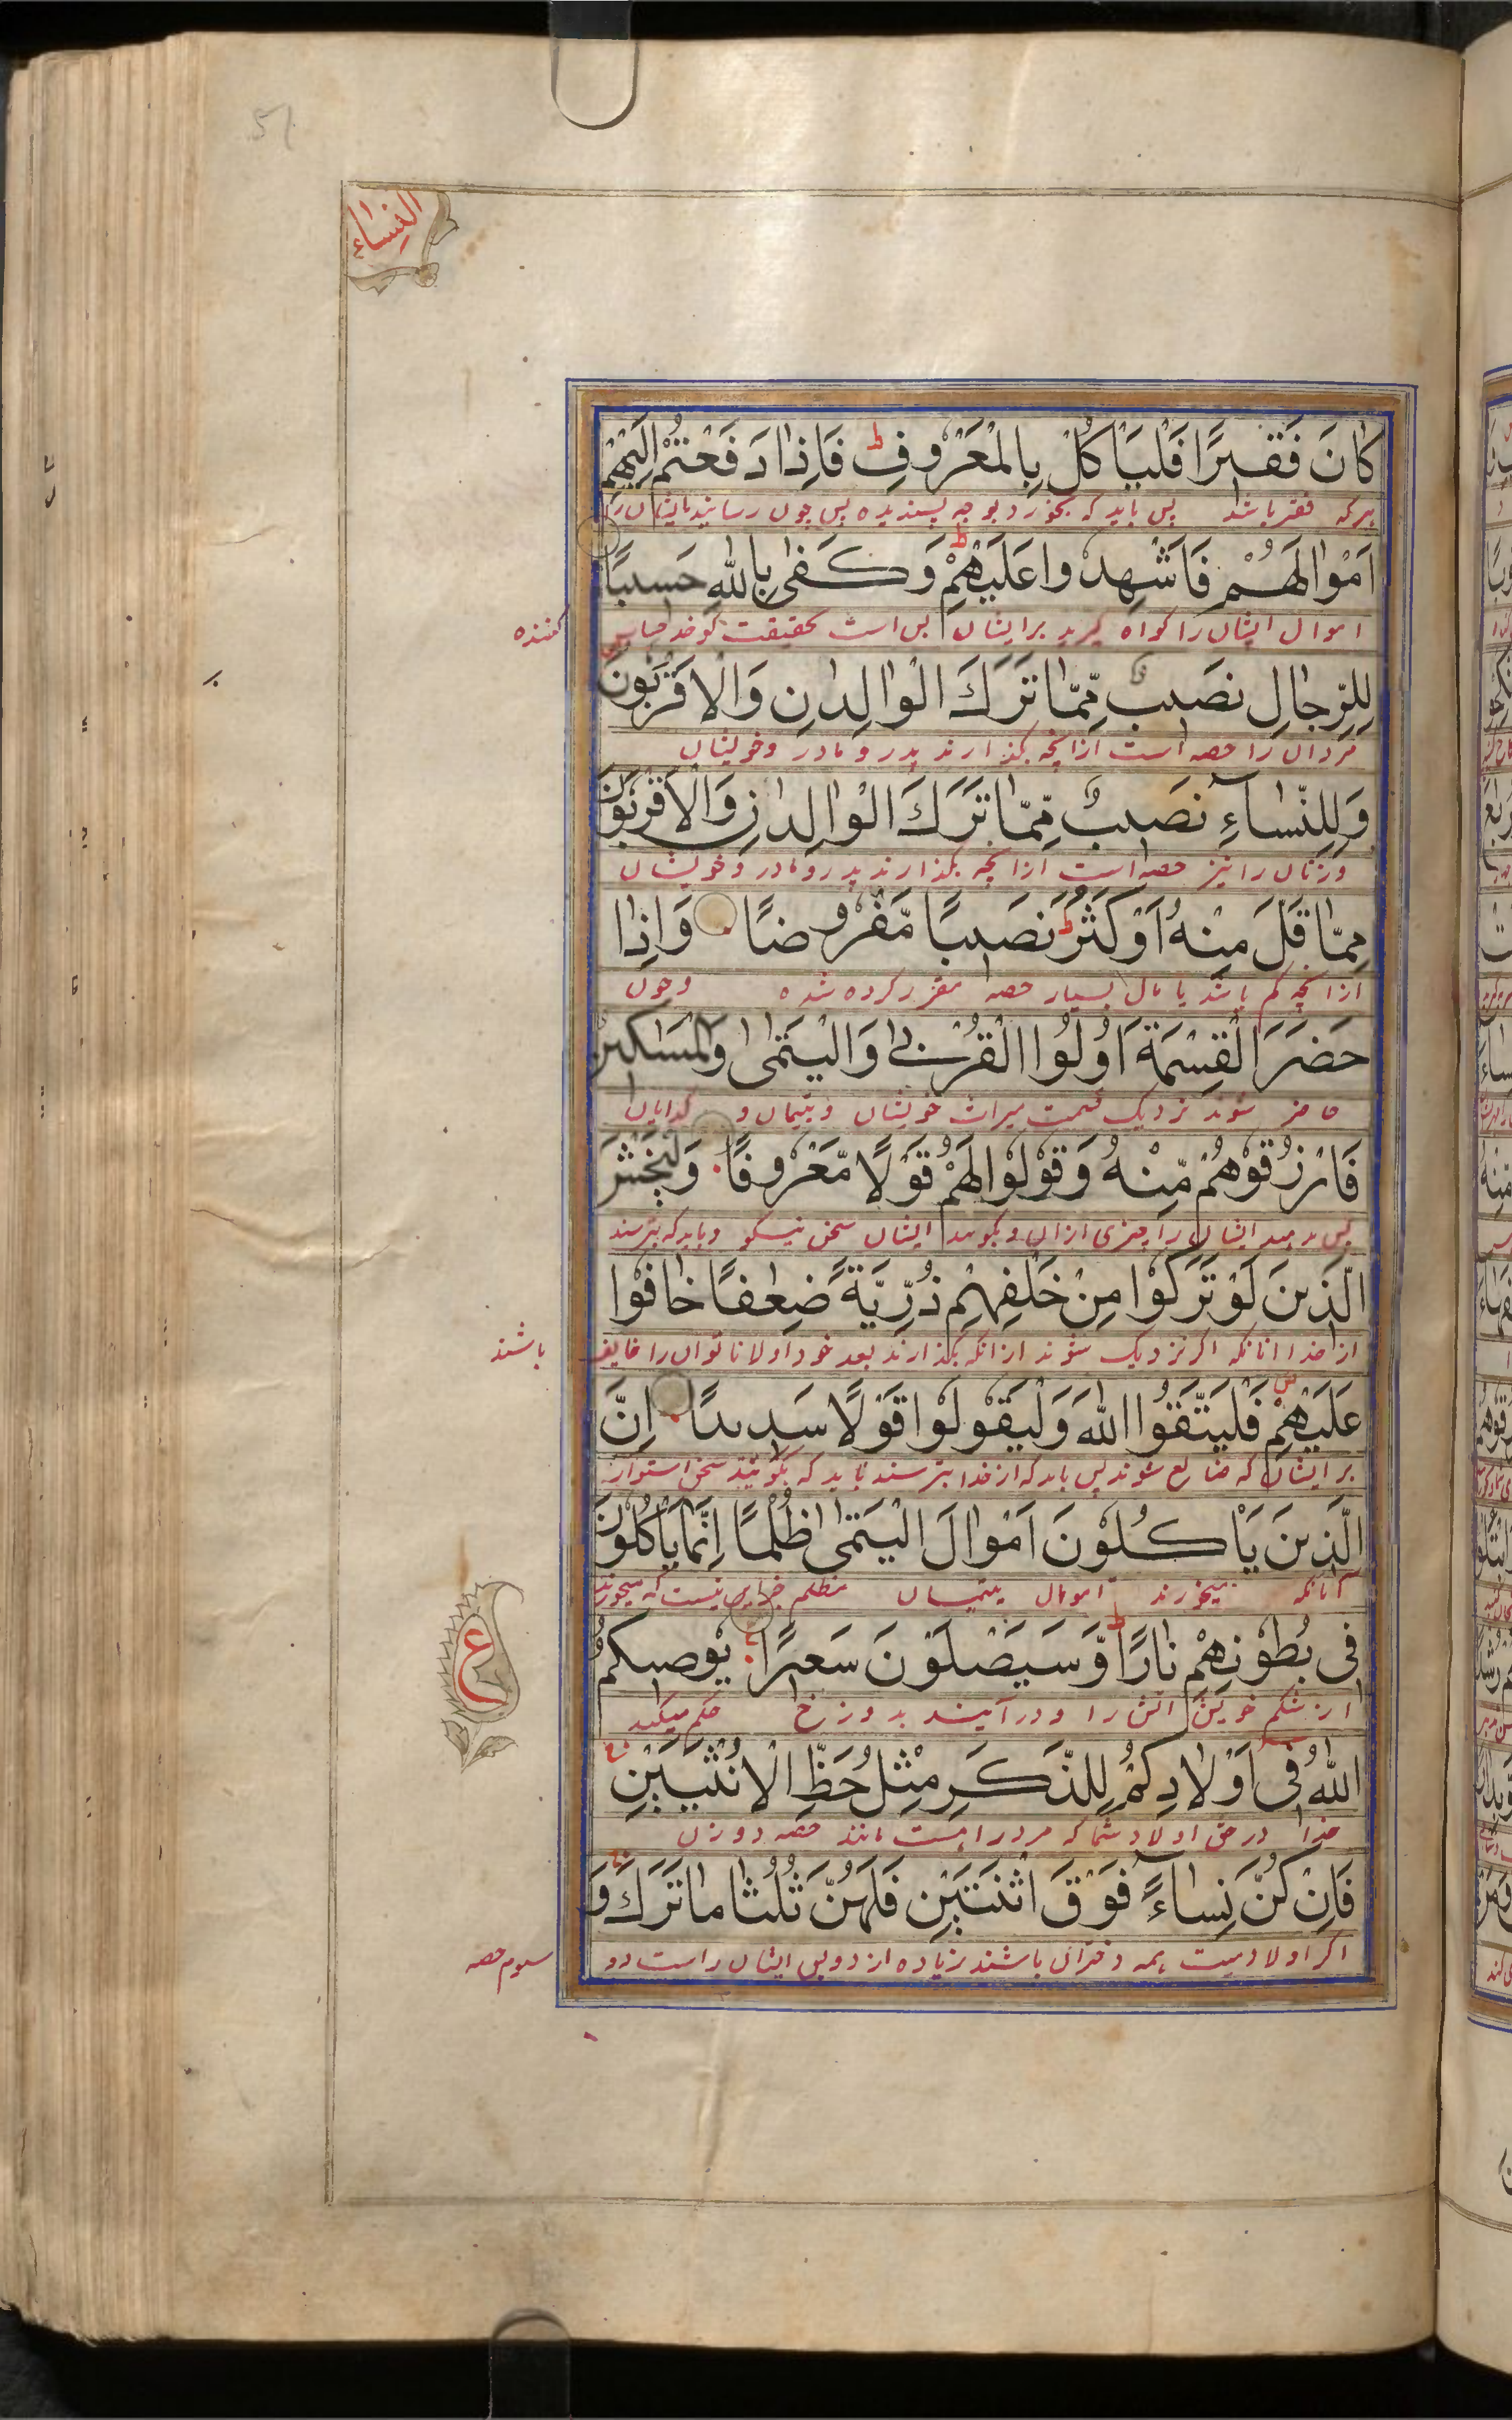 51
النساء
كَانَ فَقِيرًا فَلْيَأْكُلْ بِالْمَعْرُوفِ ط فَإِذَا دَفَعْتُمْ إِلَيْهِمْ
هر که فقیر باشد پس باید که بخورد بوجه پسندیده پس چون رسانیدبایشان را
أَمْوَالَهُمْ فَأَشْهِدُوا عَلَيْهِمْ ط وَكَفَى بِاللَّهِ حَسِيبًا
اموال ایشان را کواه کیرید بر ایشان بس است حقیقت کو خدا حساب کننده
لِلرِّجَالِ نَصِيبٌ مِّمَّا تَرَكَ الْوَالِدَانِ وَالْأَقْرَبُونَ
مردان را حصه است ازانچه بکذارند پدر و مادر وخویشان
وَلِلنِّسَاءِ نَصِيبٌ مِّمَّا تَرَكَ الْوَالِدَانِ وَالْأَقْرَبُونَ
وزنان را نیز حصه است ازانچه بکذارند پدر و مادر و خویشان
مِمَّا قَلَّ مِنْهُ أَوْ كَثُرَ ط نَصِيبًا مَّفْرُوضًا وَإِذَا
ازانچه کم باشد یا مال بسیار حصه مقرر کرده شده وچون
حَضَرَ الْقِسْمَةَ أُولُوا الْقُرْبَى وَالْيَتَامَى وَالْمَسَاكِينُ
حاضر شوند نزدیک قسمت میراث خویشان و یتیمان و کدایان
فَارْزُقُوهُمْ مِّنْهُ وَقُولُوا لَهُمْ قَوْلًا مَّعْرُوفًا وَلْيَخْشَ
پس بدهید ایشان را چیزی ازان و بکوئید ایشان سخن نیکو وباید که بترسند
الَّذِينَ لَوْ تَرَكُوا مِنْ خَلْفِهِمْ ذُرِّيَّةً ضِعَافًا خَافُوا
از خدا انانکه اکر نزدیک شوند ازانکه بکذارند بعد خود اولاد ناتوان را خایف باشند
عَلَيْهِمْ ص فَلْيَتَّقُوا اللَّهَ وَلْيَقُولُوا قَوْلًا سَدِيدًا إِنَّ
بر ایشان که ضایع شوند پس باید که از خدا بترسند باید که بکویند سخن استوار
الَّذِينَ يَأْكُلُونَ أَمْوَالَ الْيَتَامَى ظُلْمًا إِنَّمَا يَأْكُلُونَ
آنانکه میخورند اموال یتیمان بظلم جز این نیست که میخورند
فِي بُطُونِهِمْ نَارًا ط وَسَيَصْلَوْنَ سَعِيرًا يُوصِيكُمُ
ع
در شکم خویش اتش را و درآیند بدوزخ حکم میکند
اللَّهُ فِي أَوْلَادِكُمْ لِلذَّكَرِ مِثْلُ حَظِّ الْأُنْثَيَيْنِ
خدا در حق اولاد شما که مرد را هست مانند حصه دو زن
فَإِنْ كُنَّ نِسَاءً فَوْقَ اثْنَتَيْنِ فَلَهُنَّ ثُلُثَا مَا تَرَكَ وَ
اکر اولاد میت همه دختران باشند زیاده از دو پس ایشان راست دو سیوم حصه